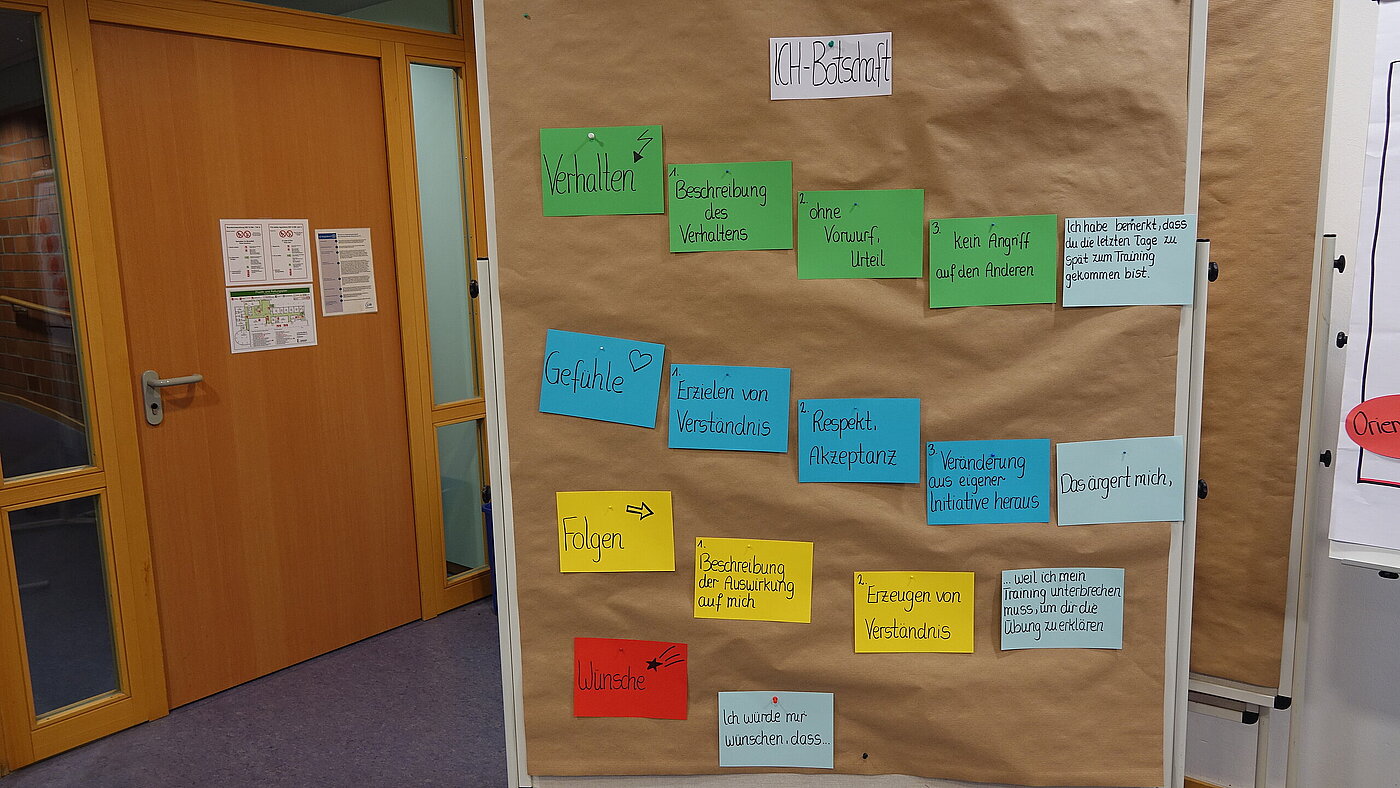 ICH-Botschaft
Verhalten
1.
Beschreibung
des
Verhaltens
2.
ohne
Vorwurf,
Urteil
3.
kein Angriff
auf den Anderen
Ich habe bemerkt, dass
du die letzten Tage zu
spät zum Training
gekommen bist.
Gefühle
1.
Erzielen von
Verständnis
2.
Respekt,
Akzeptanz
3.
Veränderung
aus eigener
Initiative heraus
Das ärgert mich,
Folgen
1.
Beschreibung
der Auswirkung
auf mich
2.
Erzeugen von
Verständnis
... weil ich mein
Training unterbrechen
muss, um dir die
Übung zu erklären
Wünsche
Ich würde mir
wünschen, dass...
Orien